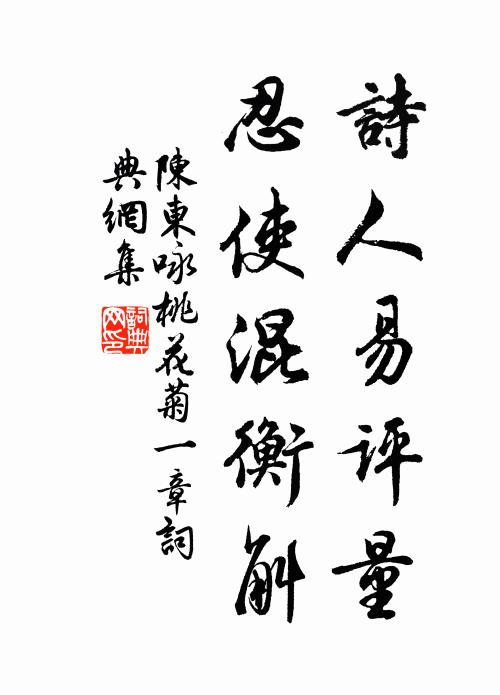 詩人易評量
忍使混衡斛
陳東咏桃花菊一章詞
典網集
詞典
网印